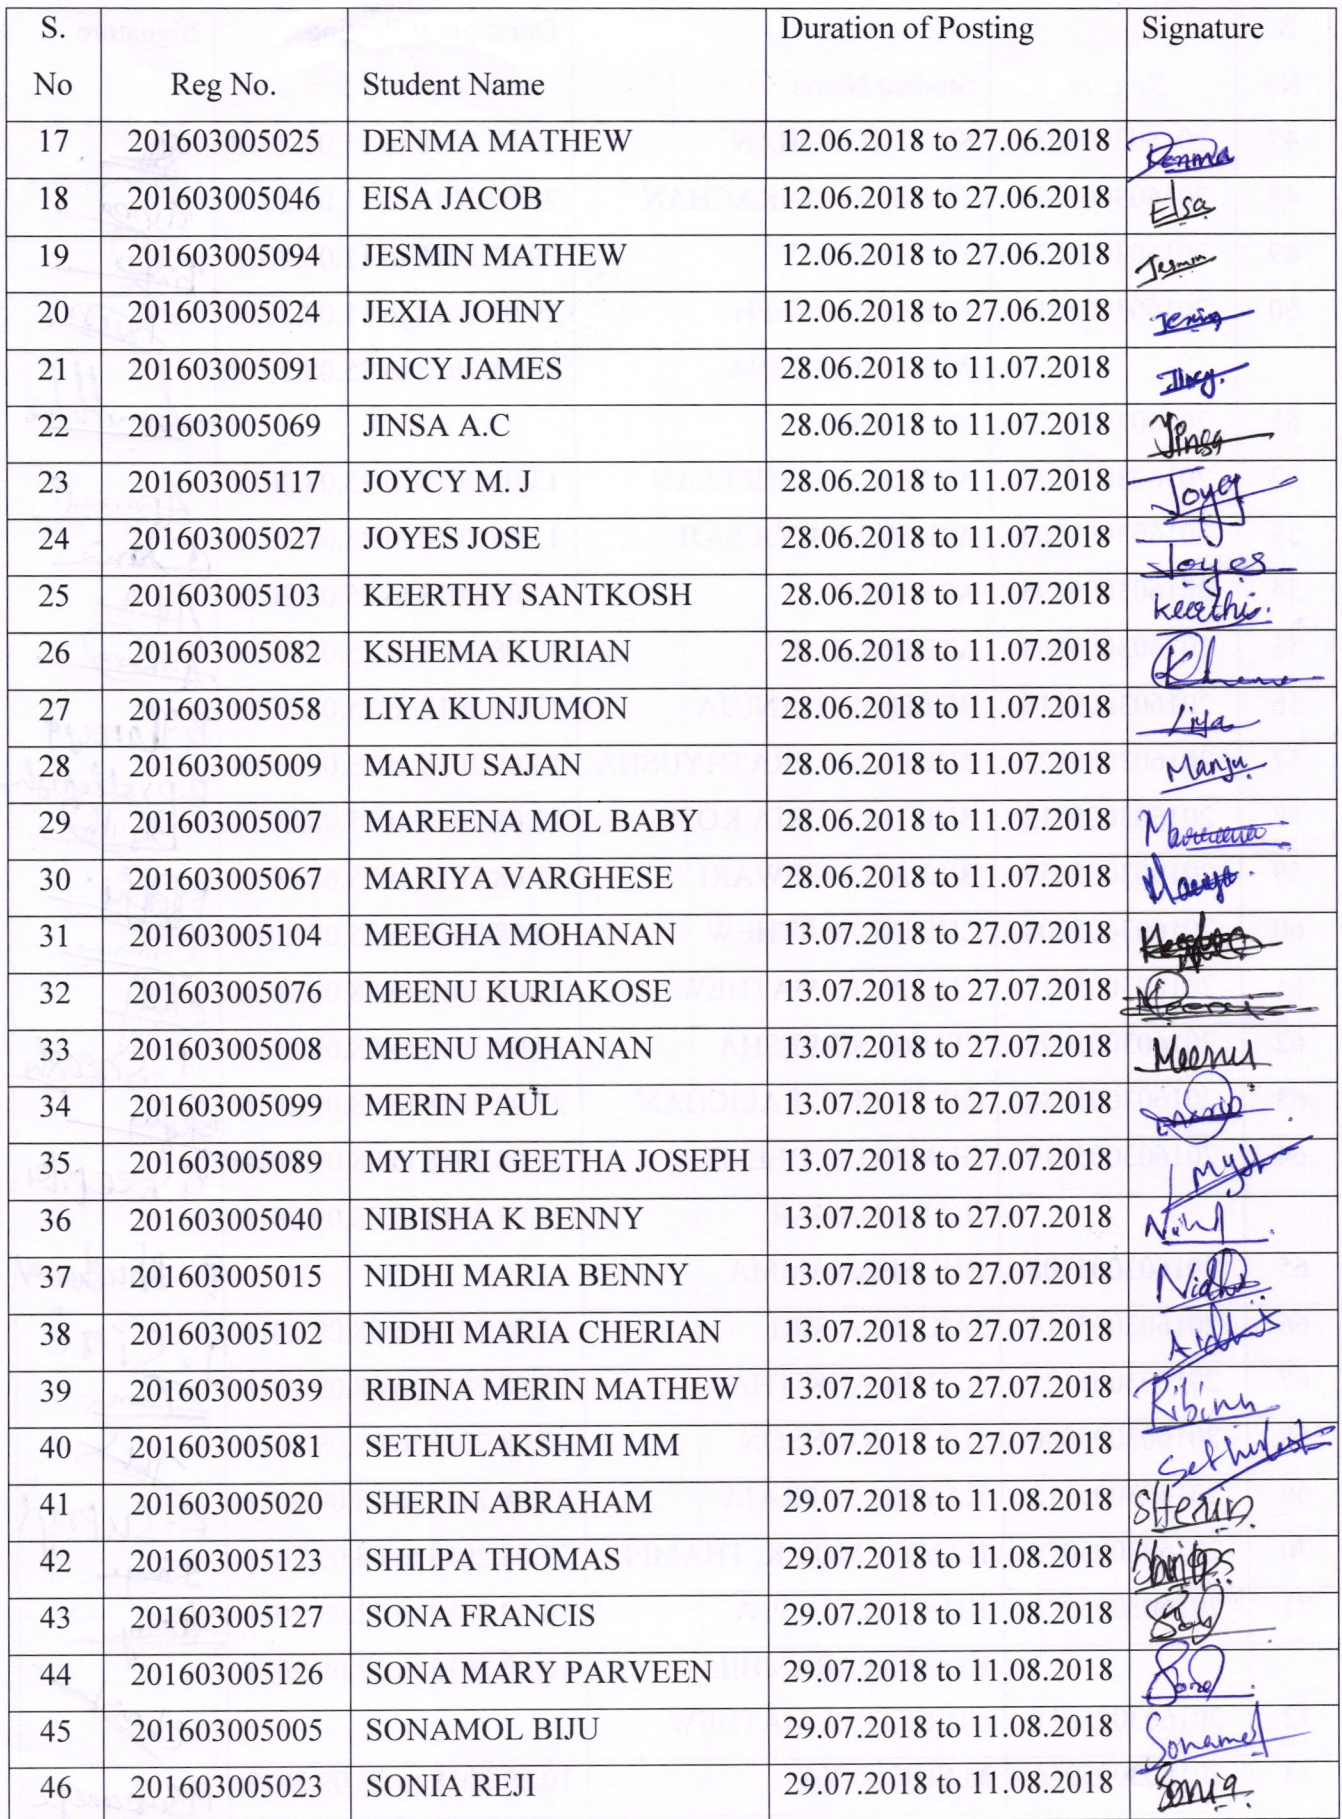 S. No Reg No. Student Name Duration of Posting Signature
17 201603005025 DENMA MATHEW 12.06.2018 to 27.06.2018 Denma
18 201603005026 EISA JACOB 12.06.2018 to 27.06.2018 Elsa
19 201603005094 JESMIN MATHEW 12.06.2018 to 27.06.2018 Jesmin
20 201603005024 JEXIA JOHNY 12.06.2018 to 27.06.2018
21 201603005091 JINCY JAMES 28.06.2018 to 11.07.2018 Jincy
22 201603005069 JINSA A.C 28.06.2018 to 11.07.2018 Jinsa
23 201603005117 JOYCY M. J 28.06.2018 to 11.07.2018 Joycy
24 201603005027 JOYES JOSE 28.06.2018 to 11.07.2018 Joyes
25 201603005103 KEERTHY SANTKOSH 28.06.2018 to 11.07.2018 keerthi.
26 201603005082 KSHEMA KURIAN 28.06.2018 to 11.07.2018
27 201603005058 LIYA KUNJUMON 28.06.2018 to 11.07.2018 Liya
28 201603005009 MANJU SAJAN 28.06.2018 to 11.07.2018 Manju
29 201603005007 MAREENA MOL BABY 28.06.2018 to 11.07.2018 Mareena
30 201603005067 MARIYA VARGHESE 28.06.2018 to 11.07.2018 Mariya
31 201603005104 MEEGHA MOHANAN 13.07.2018 to 27.07.2018
32 201603005076 MEENU KURIAKOSE 13.07.2018 to 27.07.2018
33 201603005008 MEENU MOHANAN 13.07.2018 to 27.07.2018 Meenu
34 201603005099 MERIN PAUL 13.07.2018 to 27.07.2018
35 201603005089 MYTHRI GEETHA JOSEPH 13.07.2018 to 27.07.2018
36 201603005040 NIBISHA K BENNY 13.07.2018 to 27.07.2018
37 201603005015 NIDHI MARIA BENNY 13.07.2018 to 27.07.2018 Nidhi
38 201603005102 NIDHI MARIA CHERIAN 13.07.2018 to 27.07.2018
39 201603005039 RIBINA MERIN MATHEW 13.07.2018 to 27.07.2018 Ribina
40 201603005081 SETHULAKSHMI MM 13.07.2018 to 27.07.2018
41 201603005020 SHERIN ABRAHAM 29.07.2018 to 11.08.2018 SHerin
42 201603005123 SHILPA THOMAS 29.07.2018 to 11.08.2018
43 201603005127 SONA FRANCIS 29.07.2018 to 11.08.2018
44 201603005126 SONA MARY PARVEEN 29.07.2018 to 11.08.2018
45 201603005005 SONAMOL BIJU 29.07.2018 to 11.08.2018 Sonamol
46 201603005023 SONIA REJI 29.07.2018 to 11.08.2018 Sonia